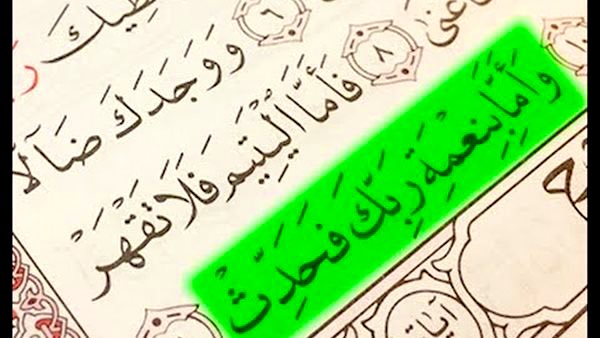 طيك
٦ وَوَجَدَكَ ضَآلًّا
غنى ٨ فَأَمَّا ٱلْيَتِيمَ فَلَا تَقْهَرْ
وَأَمَّا بِنِعْمَةِ رَبِّكَ فَحَدِّثْ